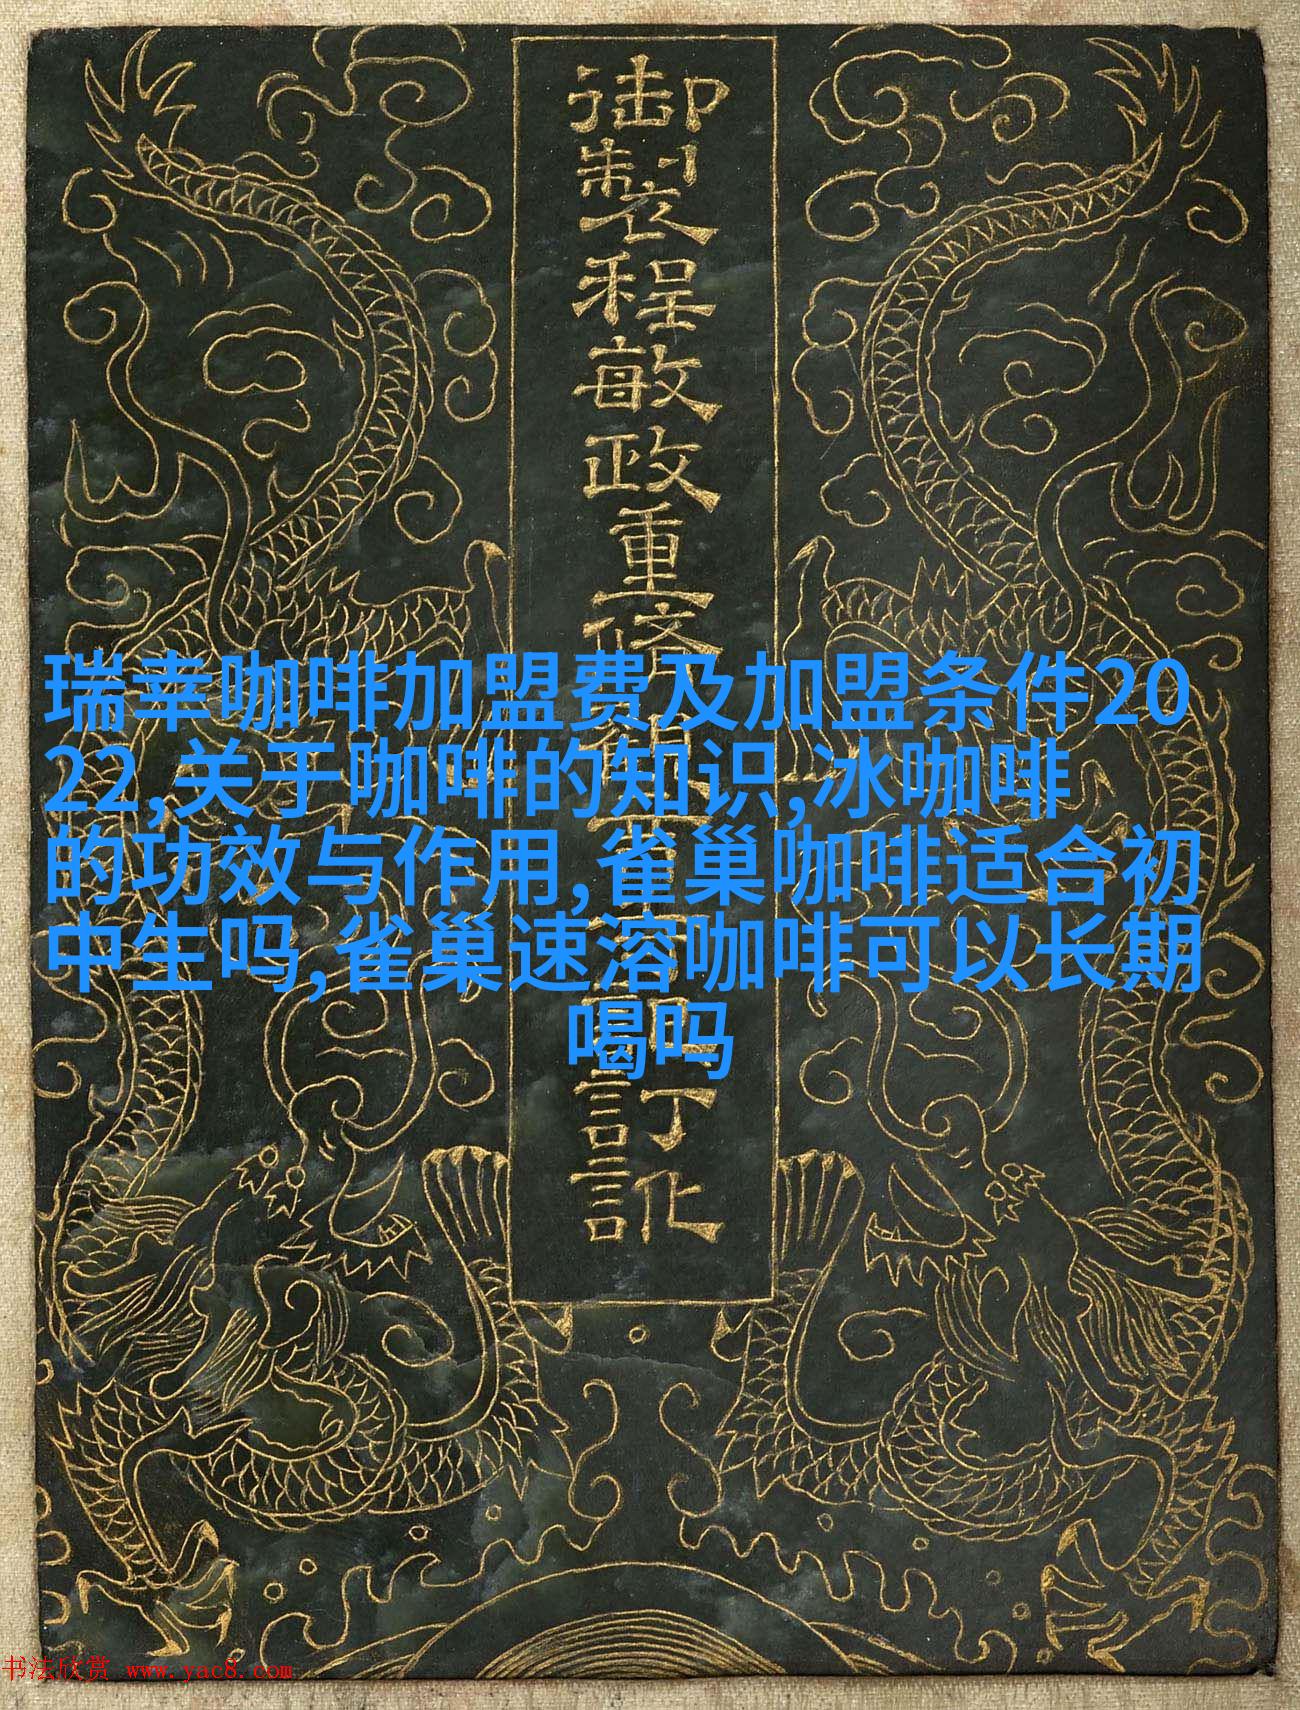 御製程敏政重修訂訛
瑞幸咖啡加盟费及加盟条件20
22,关于咖啡的知识,冰咖啡
的功效与作用,雀巢咖啡适合初
中生吗,雀巢速溶咖啡可以长期
喝吗
书法欣赏 www.yac8.com